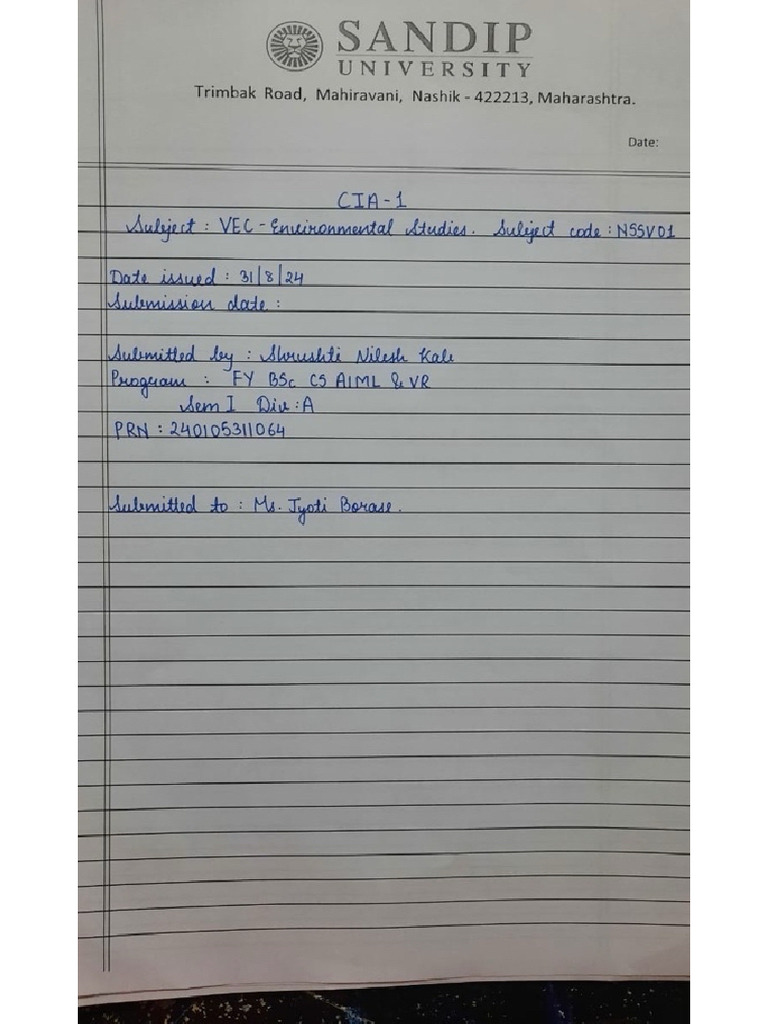 SANDIP
UNIVERSITY
Trimbak Road, Mahiravani, Nashik - 422213, Maharashtra.
Date:
CIA-1
Subject : VEC - Environmental Studies. Subject code : NSSV01
Date issued : 31/8/24
Submission date :
Submitted by : Shrushti Nilesh Kale
Program : FY BSc CS AIML & VR
Sem I Div : A
PRN : 240105311064
Submitted to : Ms. Jyoti Borase.